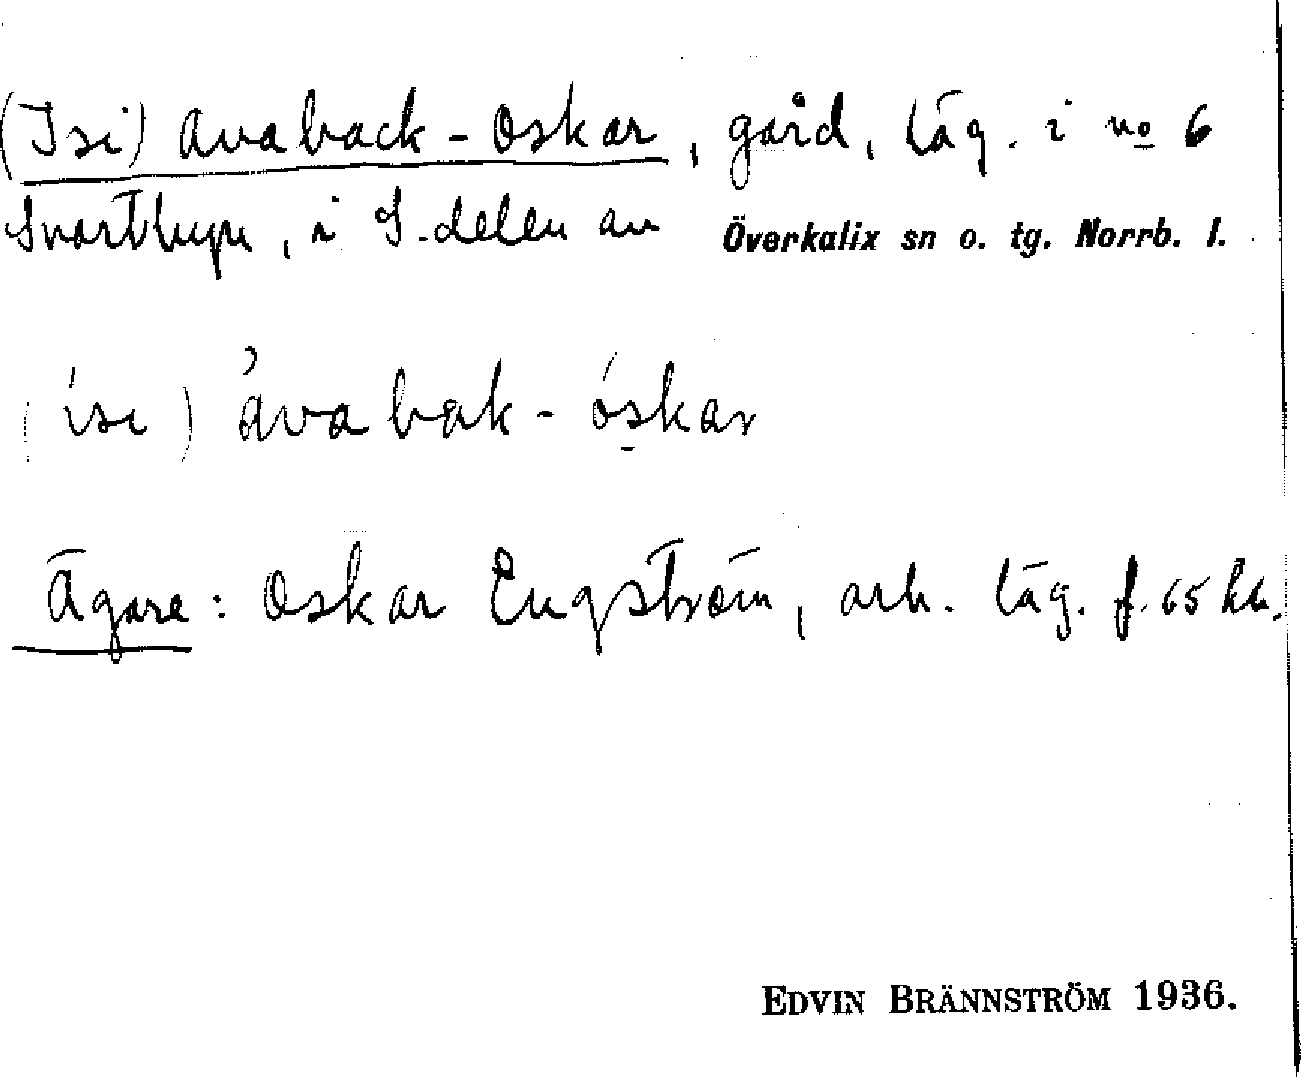 (Isi) Avaback-Oskar, gård, läg. i no 6
Svartbyn, i S. delen av Överkalix sn o. tg. Norrb. l.
(ísi) ávabak-óskar
Ägare: Oskar Engström, arb. läg. f. 65 ha.
EDVIN BRÄNNSTRÖM 1936.